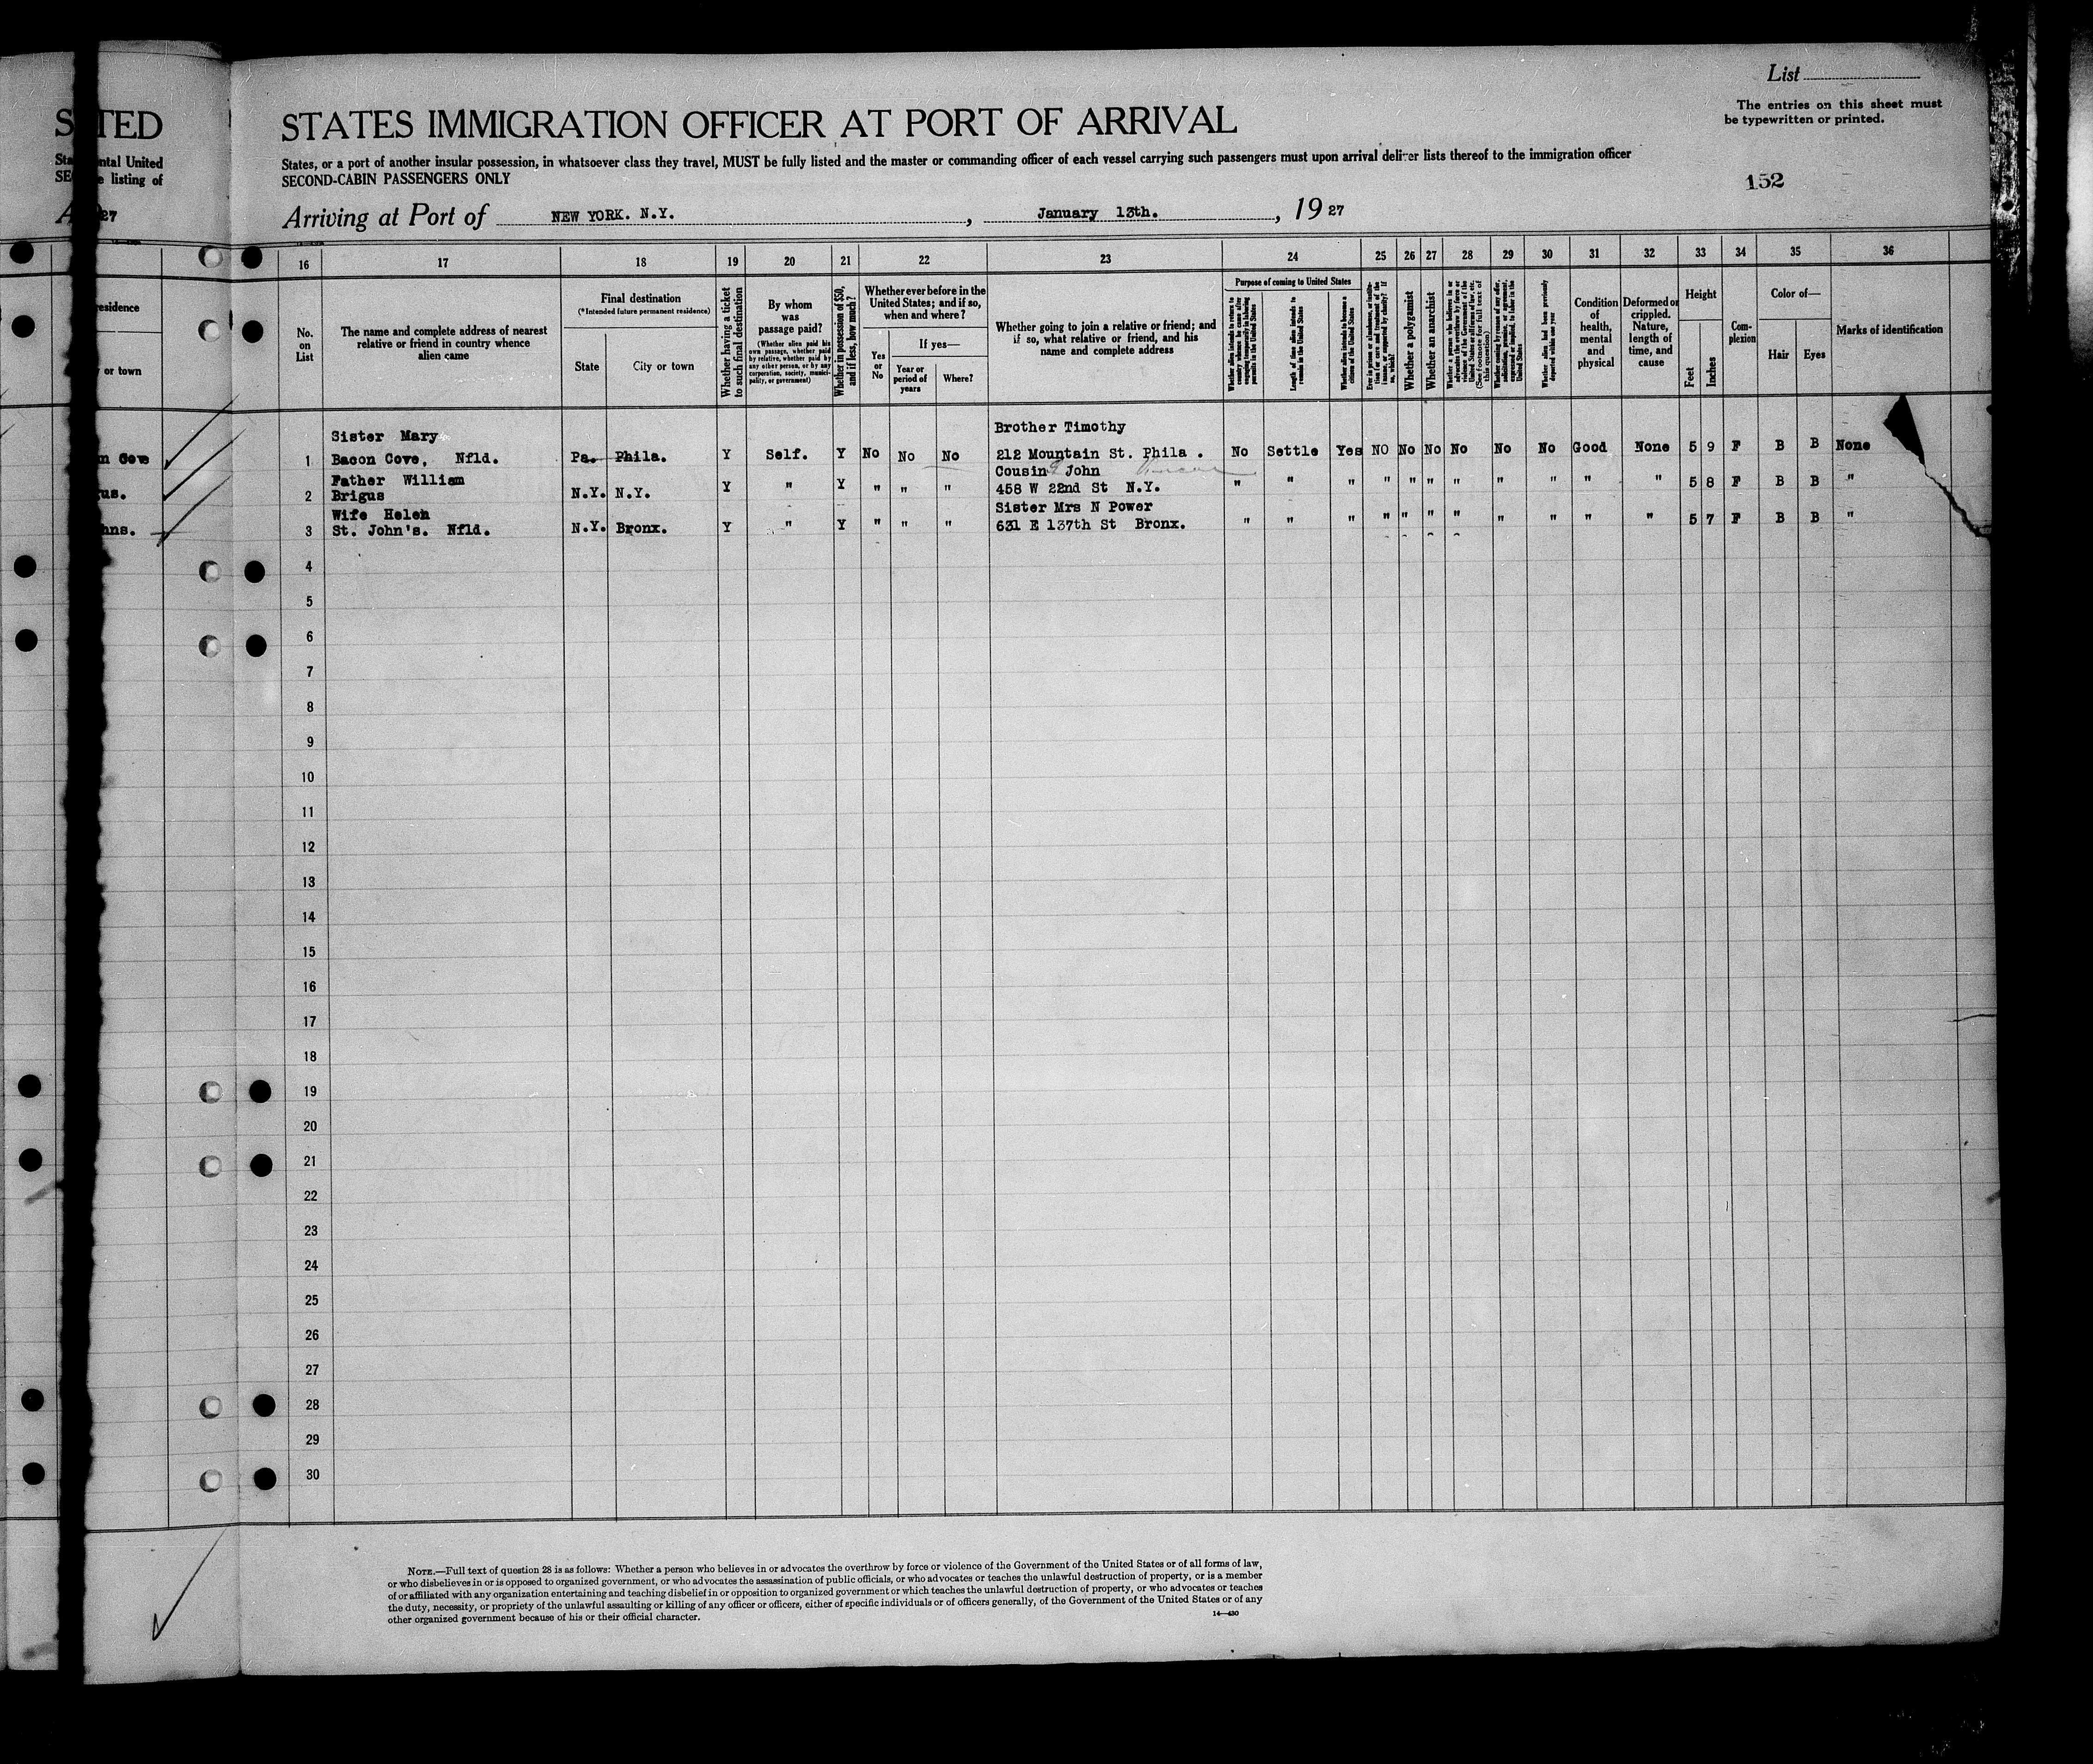 List
The entries on this sheet must
be typewritten or printed.
STATES IMMIGRATION OFFICER AT PORT OF ARRIVAL
States, or a port of another insular possession, in whatsoever class they travel, MUST be fully listed and the master or commanding officer of each vessel carrying such passengers must upon arrival deliver lists thereof to the immigration officer
SECOND-CABIN PASSENGERS ONLY
152
Arriving at Port of NEW YORK. N.Y. , January 13th. , 19 27
TED
ntal United
e listing of
27
esidence
y or town
16 17 18 19 20 21 22 23 24 25 26 27 28 29 30 31 32 33 34 35 36
No. on List
The name and complete address of nearest
relative or friend in country whence
alien came
Final destination
(*Intended future permanent residence)
State City or town
Whether having a ticket
to such final destination
By whom
was
passage paid?
(Whether alien paid his
own passage, whether paid
by relative, whether paid by
any other person, or by any
corporation, society, munici-
pality, or government)
Whether in possession of $50,
and if less, how much?
Whether ever before in the
United States; and if so,
when and where?
Yes or No
If yes—
Year or period of years
Where?
Whether going to join a relative or friend; and
if so, what relative or friend, and his
name and complete address
Purpose of coming to United States
Whether alien intends to return to
country whence he came after
engaging temporarily in laboring
pursuits in the United States
Length of time alien intends to
remain in the United States
Whether alien intends to become a
citizen of the United States
Whether a polygamist
Whether an anarchist
Whether alien had been previously
deported within one year
Condition
of
health,
mental
and
physical
Deformed or
crippled.
Nature,
length of
time, and
cause
Height
Feet Inches
Com-
plexion
Color of—
Hair Eyes
Marks of identification
Sister Mary Brother Timothy
1 Bacon Cove, Nfld. Pa. Phila. Y Self. Y No No No 212 Mountain St. Phila . No Settle Yes NO No No No No No Good None 5 9 F B B None
Father William Cousin John
2 Brigus N.Y. N.Y. Y " Y " " " 458 W 22nd St N.Y. " " " " " " " " " " " 5 8 F B B "
Wife Helen Sister Mrs N Power
3 St. John's. Nfld. N.Y. Bronx. Y " Y " " " 631 E 137th St Bronx. " " " " " " " " " " " 5 7 F B B "
4
5
6
7
8
9
10
11
12
13
14
15
16
17
18
19
20
21
22
23
24
25
26
27
28
29
30
NOTE.—Full text of question 28 is as follows: Whether a person who believes in or advocates the overthrow by force or violence of the Government of the United States or of all forms of law,
or who disbelieves in or is opposed to organized government, or who advocates the assassination of public officials, or who advocates or teaches the unlawful destruction of property, or is a member
of or affiliated with any organization entertaining and teaching disbelief in or opposition to organized government or which teaches the unlawful destruction of property, or who advocates or teaches
the duty, necessity, or propriety of the unlawful assaulting or killing of any officer or officers, either of specific individuals or of officers generally, of the Government of the United States or of any
other organized government because of his or their official character.
14—430